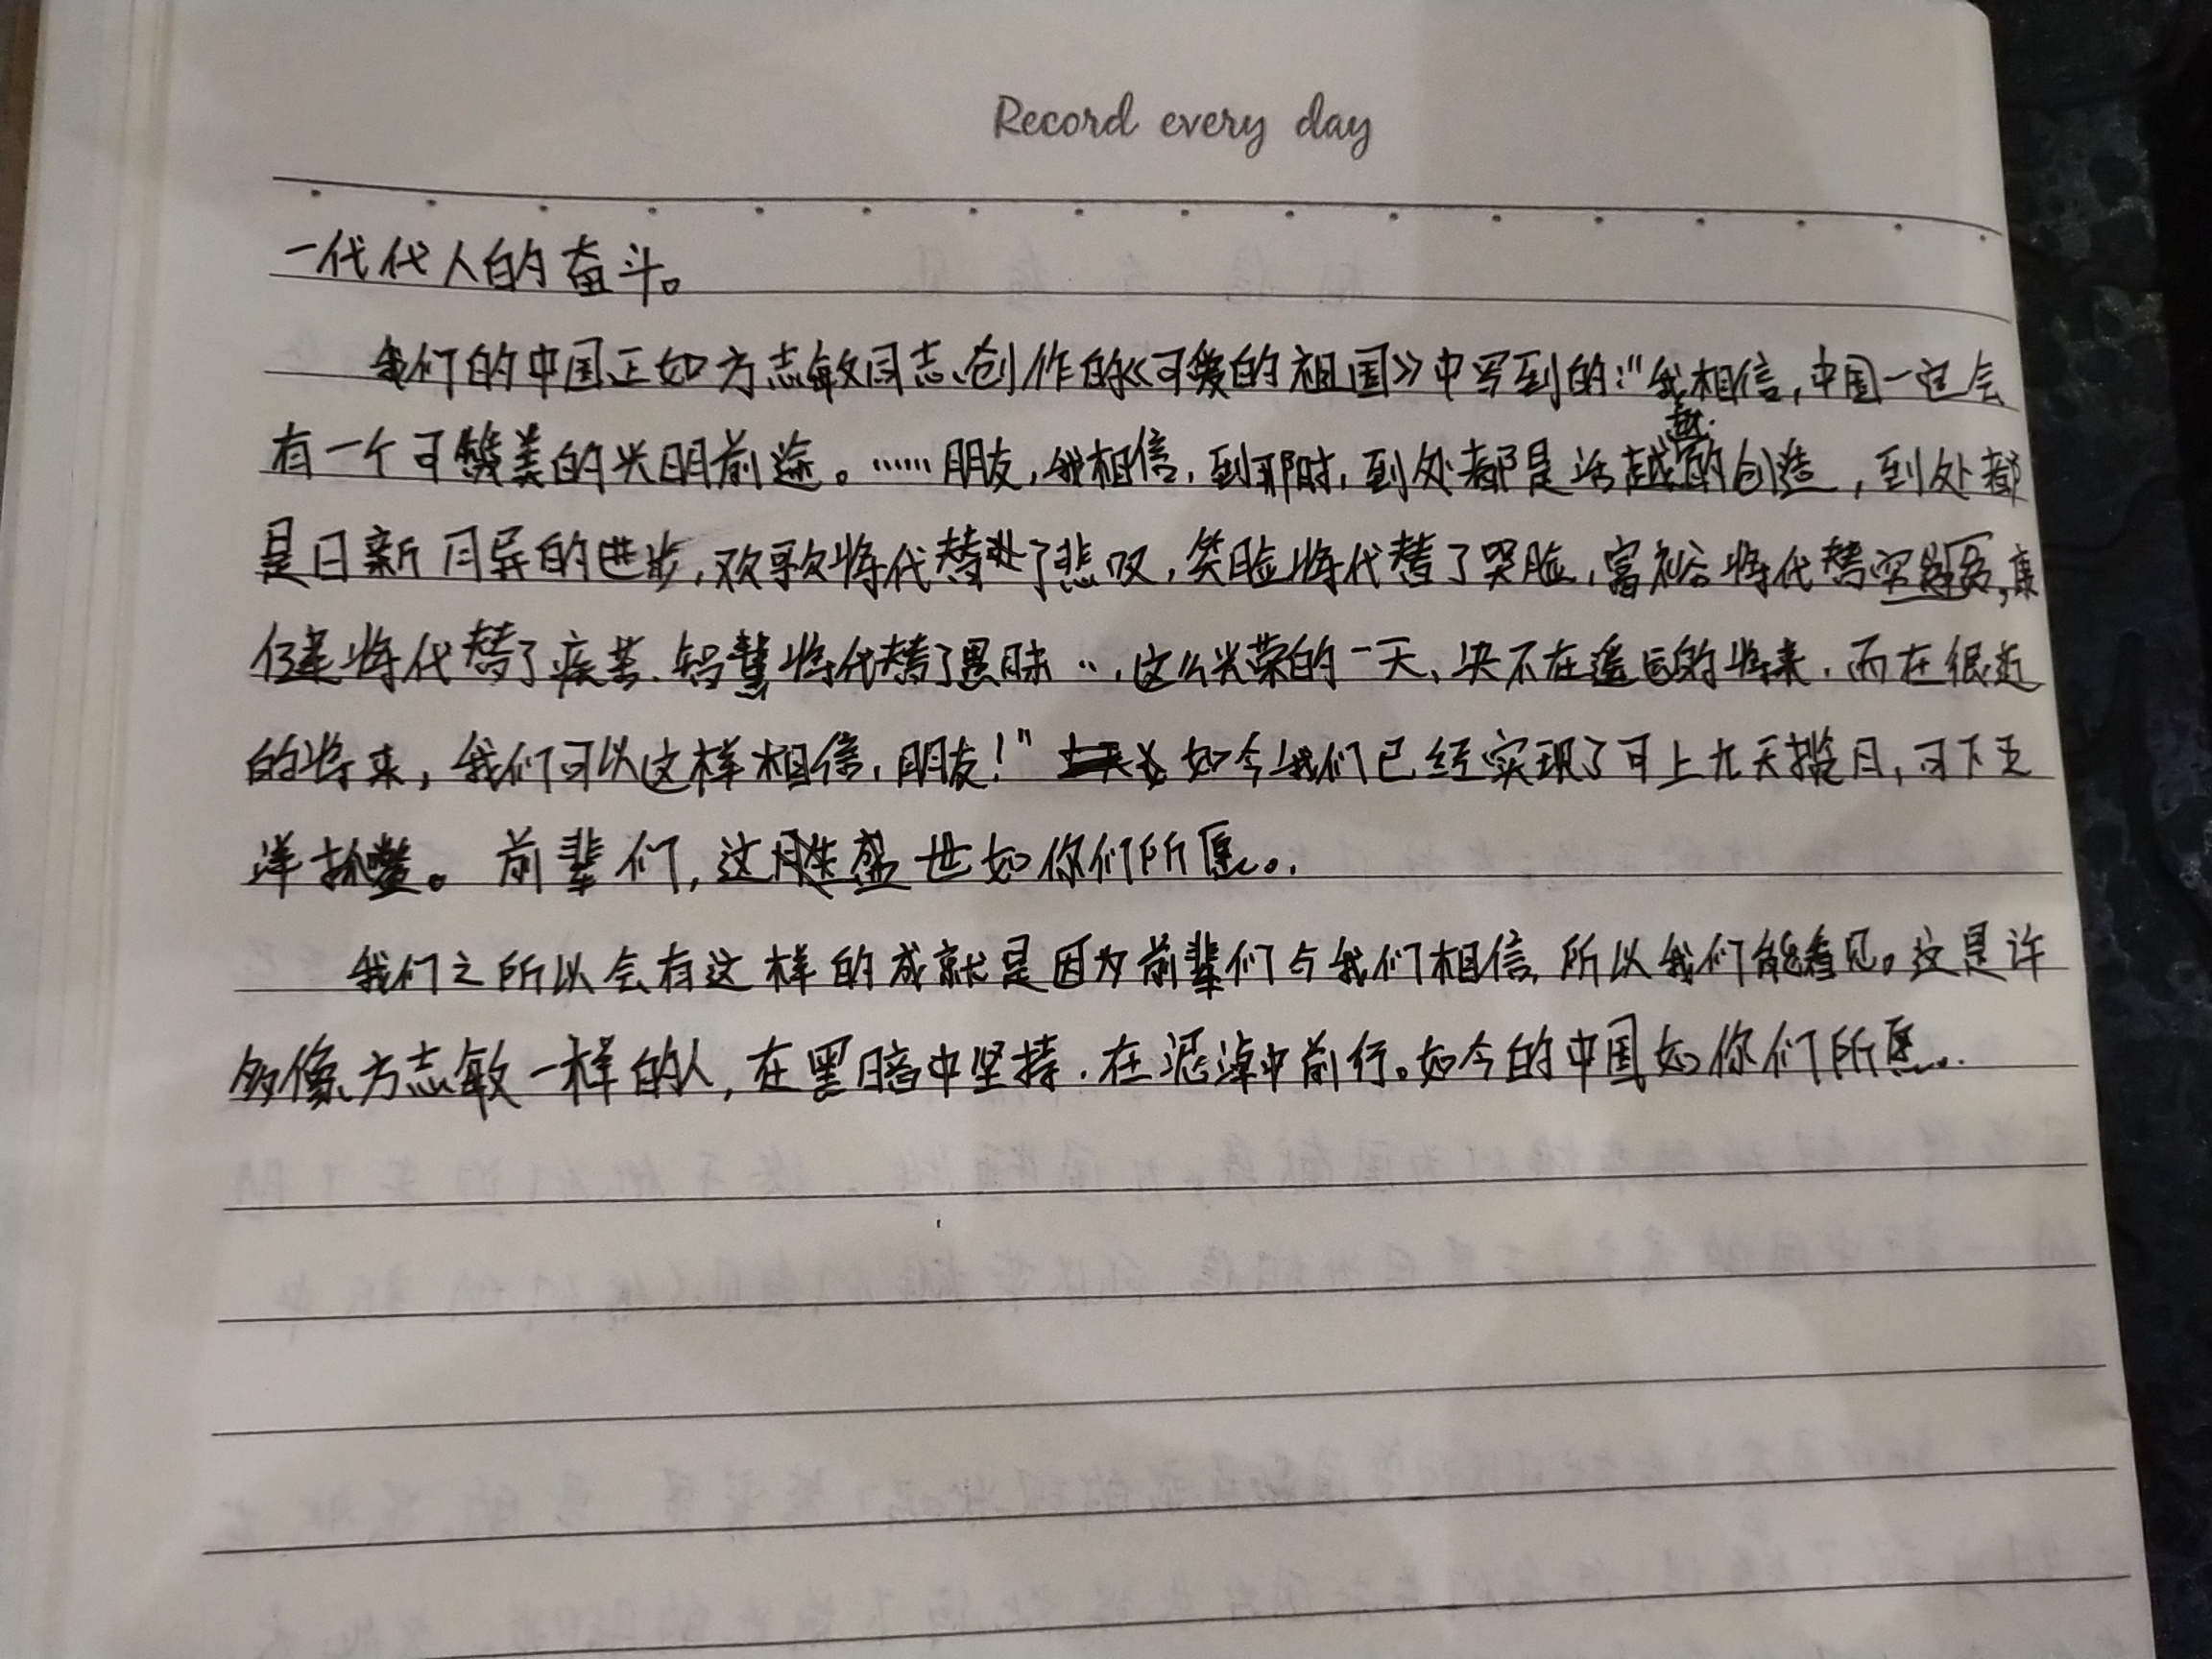 Record every day
一代代人的奋斗。
我们的中国正如方志敏同志创作的《可爱的祖国》中写到的:"我相信,中国一定会
有一个可赞美的光明前途。……朋友,我相信,到那时,到处都是活越的创造,到处都
是日新月异的进步,欢歌将代替了悲叹,笑脸将代替了哭脸,富裕将代替穷,康
健将代替了疾苦.智慧将代替了愚昧…,这么光荣的一天、决不在遥远的将来.而在很近
的将来,我们可以这样相信,朋友!"如今我们已经实现了可上九天揽月,可下五
洋捉鳖。前辈们,这盛世如你们所愿。.
我们之所以会有这样的成就是因为前辈们与我们相信,所以我们能看见。这是许
多像方志敏一样的人,在黑暗中坚持.在泥淖中前行。如今的中国如你们所愿..